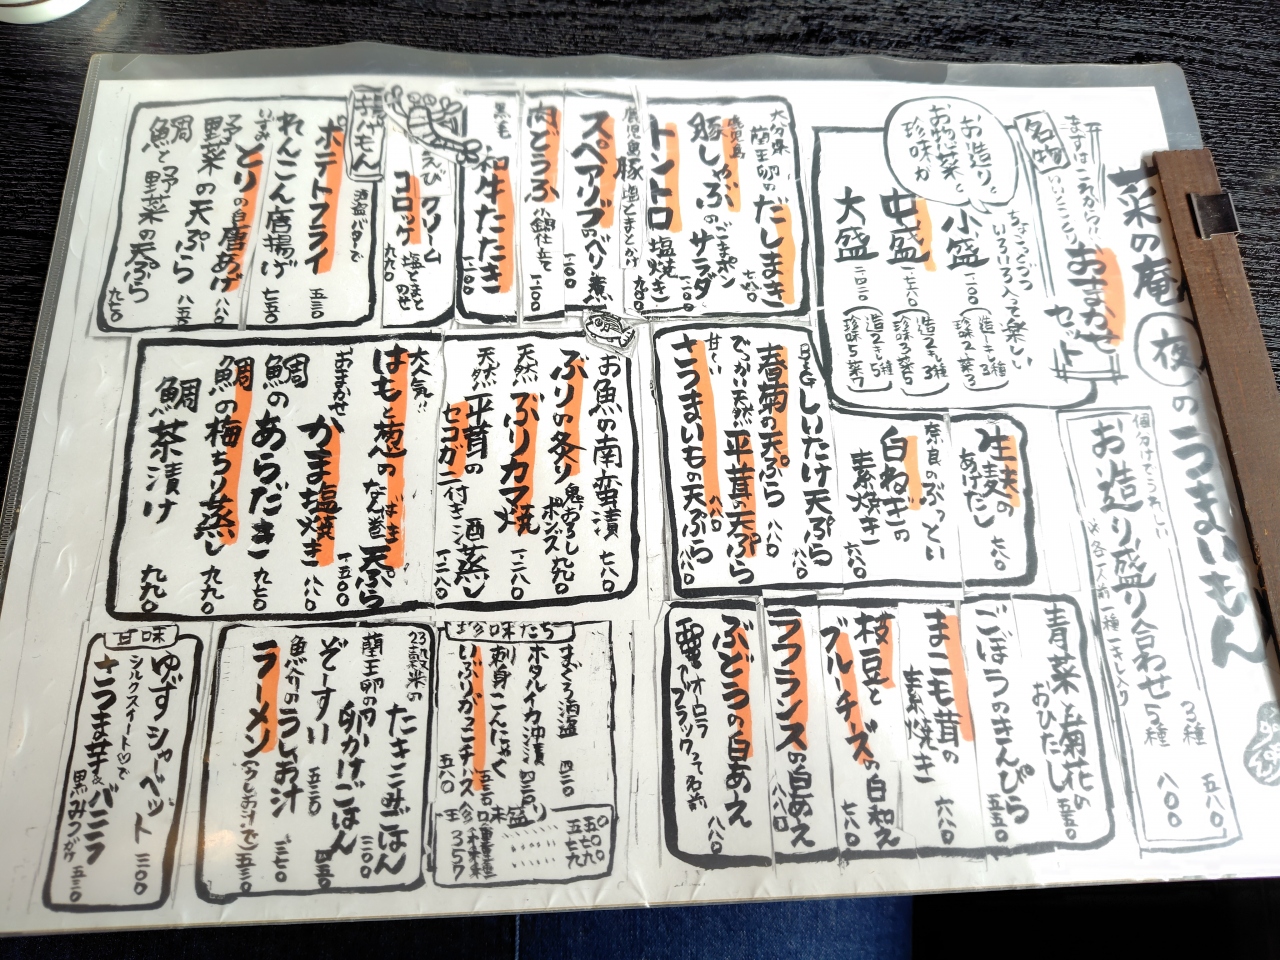 菜の庵 夜のうまいもん
個分けでうれしい
お造り盛り合わせ
※各一人前 一種一キレ入り
3種 五八〇
5種 八〇〇
名物
まずはこれから!!
おまかせ
セット
ちょこっとづつ
いろいろ入って楽しい
お造りと
お惣菜と
珍味が
小盛 一一〇〇
中盛 一五八〇
大盛
生麦の
あげだし 七八〇
奈良のぶっとい
白ねぎの
素焼き 六八〇
BIGしいたけ天ぷら 七八〇
春菊の天ぷら 八八〇
でっかい天然平茸の天ぷら 八八〇
甘〜い
さつまいもの天ぷら 八八〇
青菜と菊花の
おひたし 五五〇
ごぼうのきんぴら 五五〇
まこも茸の
素焼き 六八〇
枝豆と
ブルーチーズの白和え 七八〇
ラフランスの白あえ 八八〇
ぶどうの白あえ 八八〇
オーロラ
ブラックって名前
大分県
蘭王卵のだしまき 七八〇
鹿児島
豚しゃぶのサラダ
ごまポン
トントロ
塩焼き 九〇〇
鹿児島豚
塩とまとかけ
スペアリブのべり煮 一一〇〇
肉どうふ
小鍋仕立て 一一〇〇
黒毛
和牛たたき 一二〇〇
揚げもん
えびクリーム
コロッケ
塩とまと
のせ 九九〇
酒盗バターで
ポテトフライ 五三〇
れんこん唐揚げ 七五〇
とりの白唐あげ 八八〇
野菜の天ぷら 八五〇
鯛と野菜の天ぷら 九七〇
お魚の南蛮漬 七八〇
ぶりの炙り
鬼おろし
ポンズ 九九〇
天然
ぶりカマ焼 一二八〇
天然平茸の酒蒸し
セコガニ一付き 一二八〇
大人気!!
はもと葱の天ぷら 一五〇〇
おまかせ
かま塩焼き 八八〇
鯛のあらだき 九七〇
鯛の梅ちり蒸し 九九〇
鯛茶漬け 九九〇
珍味たち
まぐろ酒盗 四二〇
ホタルイカ沖漬 四二〇
刺身こんにゃく 五三〇
いぶりがっこチーズ 五八〇
珍味盛り
23穀米の
たき込ごはん 三〇〇
蘭王卵の
卵かけごはん 四五〇
ぞーすい 五五〇
魚だけのうしお汁 三五〇
ラーメン(うしお汁で) 五三〇
甘味
ゆずシャーベット 三〇〇
シルクスイート♡で
さつま芋&バニラ
黒みつがけ 五三〇